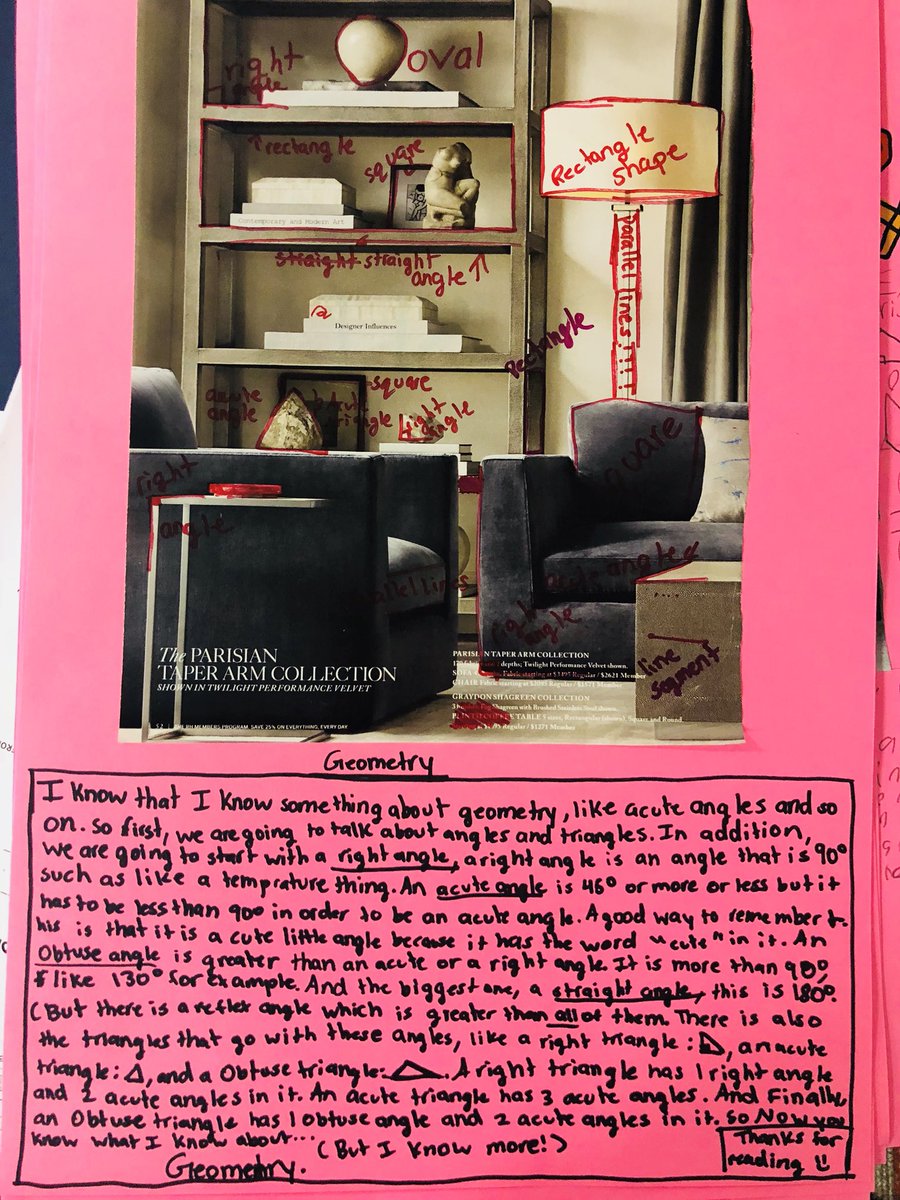 oval
right
angle
↑rectangle
square
Rectangle
shape
Contemporary and Modern Art
straight straight
angle ↑
parallel lines!!!!
Designer Influences
Rectangle
square
acute
angle
right
angle
square
right
angle
parallel lines
acute angle
right
angle
line
segment
The PARISIAN
TAPER ARM COLLECTION
SHOWN IN TWILIGHT PERFORMANCE VELVET
PARISIAN TAPER ARM COLLECTION
depths; Twilight Performance Velvet shown.
Regular / $2621 Member
CHAIR Fabric starting at
Member
GRAYDON SHAGREEN COLLECTION
Shagreen with Brushed Stainless Steel shown.
TABLE 5 sizes, Rectangular (shown), Square and Round
Regular / $1271 Member
52 | THE RH MEMBERS PROGRAM SAVE 25% ON EVERYTHING, EVERY DAY.
Geometry
I know that I know something about geometry, like acute angles and so
on. So first, we are going to talk about angles and triangles. In addition,
we are going to start with a right angle, a right angle is an angle that is 90°
such as like a temprature thing. An acute angle is 46° or more or less but it
has to be less than 90° in order to be an acute angle. A good way to remember t-
his is that it is a cute little angle because it has the word "cute" in it. An
Obtuse angle is greater than an acute or a right angle. It is more than 90°,
like 130° for example. And the biggest one, a straight angle, this is 180°.
(But there is a reflex angle which is greater than all of them. There is also
the triangles that go with these angles, like a right triangle: , an acute
triangle: , and a Obtuse triangle: . A right triangle has 1 right angle
and 2 acute angles in it. An acute triangle has 3 acute angles. And Finally
an Obtuse triangle has 1 obtuse angle and 2 acute angles in it. So Now you
know what I know about... (But I know more!)
Geometry.
Thanks for
reading